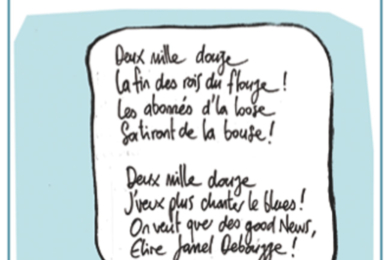 Deux mille douze
La fin des rois du flouze !
Les abonnés d'la loose
Satiront de la bouse !
Deux mille douze
J'veux plus chanter le blues !
On veut que des good News,
Elire Jamel Debouzze !